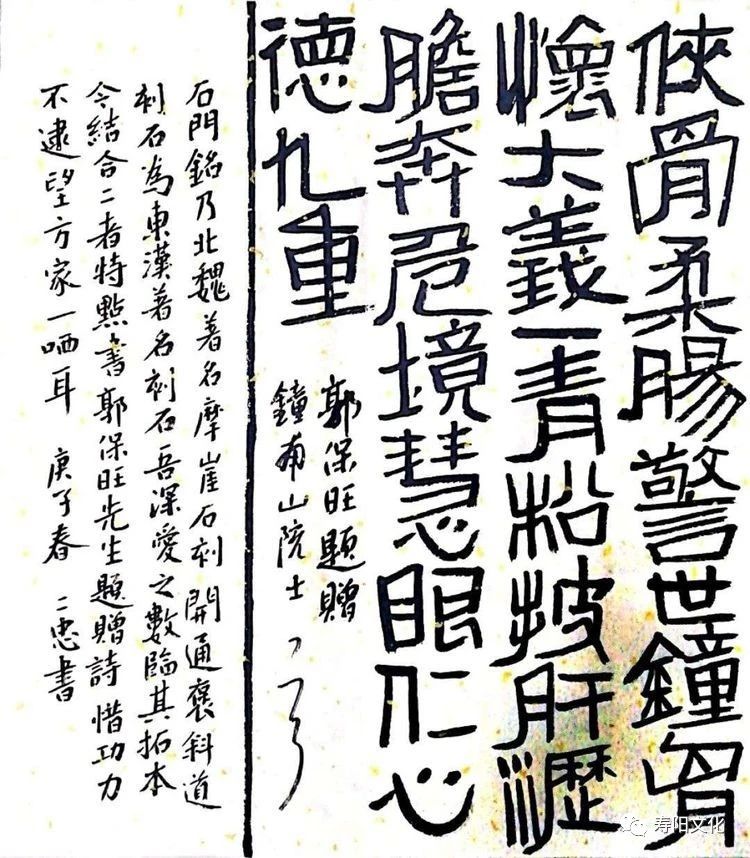 俠骨柔腸警世鐘胷
懷大義一青松披肝瀝
膽奔危境慧眼仁心
德九重
郭保旺題贈
鐘南山院士
石門銘乃北魏著名摩崖石刻開通褒斜道
刻石為東漢著名刻石吾深愛之數臨其拓本
今結合二者特點書郭保旺先生題贈詩惜功力
不逮望方家一哂耳 庚子春 二忠書
寿阳文化